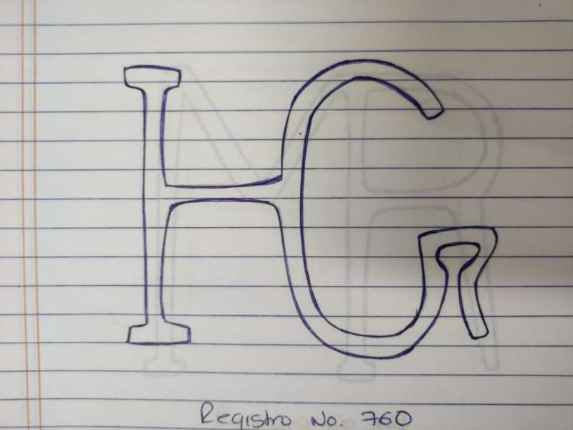 HG
Registro No. 760